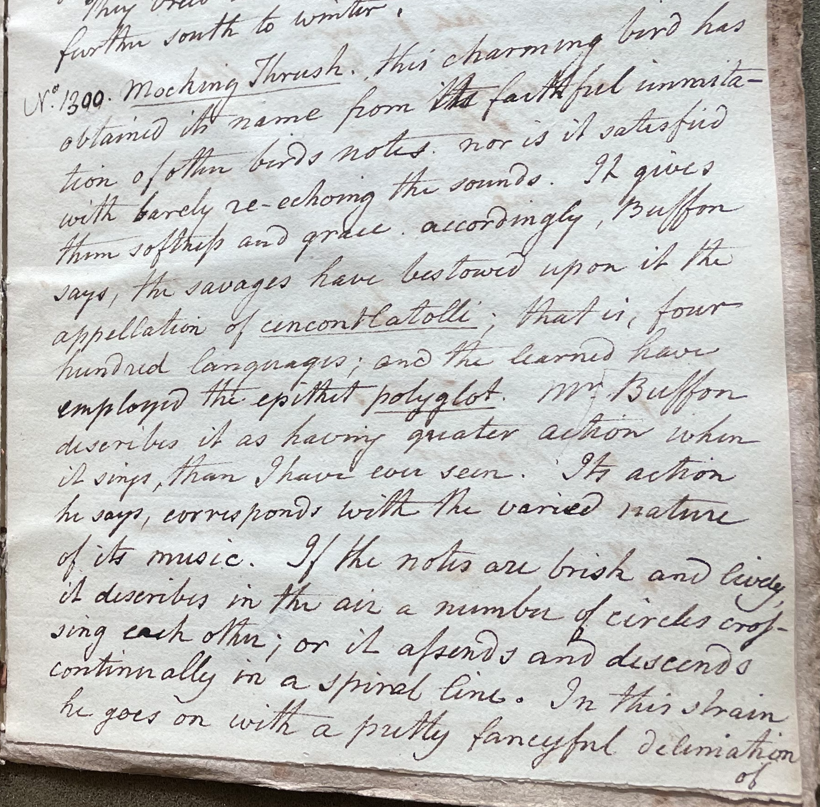 They breed
further south to winter.
No. 1390. Mocking Thrush. this charming bird has
obtained its name from its faithful immita-
tion of other birds notes. nor is it satisfied
with barely re-echoing the sounds. It gives
them softneſs and grace. accordingly, Buffon
says, the savages have bestowed upon it the
appellation of cencontlatolli; that is, four
hundred languages; and the learned have
employed the epithet polyglot. Mr. Buffon
describes it as having greater action when
it sings, than I have ever seen. Its action
he says, corresponds with the varied nature
of its music. If the notes are brisk and lively,
it describes in the air a number of circles croſ-
sing each other; or it aſsends and descends
continually in a spiral line. In this strain
he goes on with a pretty fancyful deliniation
of